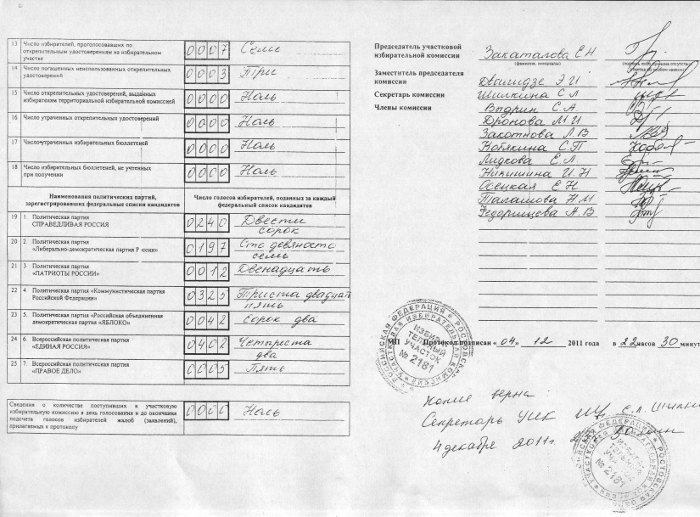 13 Число избирателей, проголосовавших по
открепительным удостоверениям на избирательном
участке
0007 Семь
14 Число погашенных неиспользованных открепительных
удостоверений
0003 Три
15 Число открепительных удостоверений, выданных
избирателям территориальной избирательной комиссией
0000 Ноль
16 Число утраченных открепительных удостоверений
0000 Ноль
17 Число утраченных избирательных бюллетеней
0000 Ноль
18 Число избирательных бюллетеней, не учтенных
при получении
0000 Ноль
Наименования политических партий,
зарегистрировавших федеральные списки кандидатов
Число голосов избирателей, поданных за каждый
федеральный список кандидатов
19 1 Политическая партия
СПРАВЕДЛИВАЯ РОССИЯ
0240 Двести
сорок
20 2 Политическая партия
«Либерально-демократическая партия
0197 Сто девяносто
семь
21 3 Политическая партия
«ПАТРИОТЫ РОССИИ»
0012 Двенадцать
22 4 Политическая партия «Коммунистическая партия
Российской Федерации»
0325 Триста двадцать
пять
23 5. Политическая партия «Российская объединенная
демократическая партия «ЯБЛОКО»
0042 Сорок два
24 6. Всероссийская политическая партия
«ЕДИНАЯ РОССИЯ»
0402 Четыреста
два
25 7. Всероссийская политическая партия
«ПРАВОЕ ДЕЛО»
0005 Пять
Сведения о количестве поступивших в участковую
избирательную комиссию в день голосования и до окончания
подсчета голосов избирателей жалоб (заявлений),
прилагаемых к протоколу
0000 Ноль
Председатель участковой
избирательной комиссии Закаталова Е Н
Заместитель председателя
комиссии Двалидзе Э И
Секретарь комиссии Шилкина С Л
Члены комиссии Выдрин С. А
Дронова М. И
Закотнова Л. В
Кобякина С. П
Лидкова Е. Л
Никишина И. Н
Осецкая Е Н
Талашова Н. М
Федорищева А. В
МП Протокол подписан «04» 12 2011 года в 22 часов 30 минут
РОССИЙСКАЯ ФЕДЕРАЦИЯ
УЧАСТОК
№ 2181
Копия верна
Секретарь УИК
4 декабря 2011г.
№ 2181